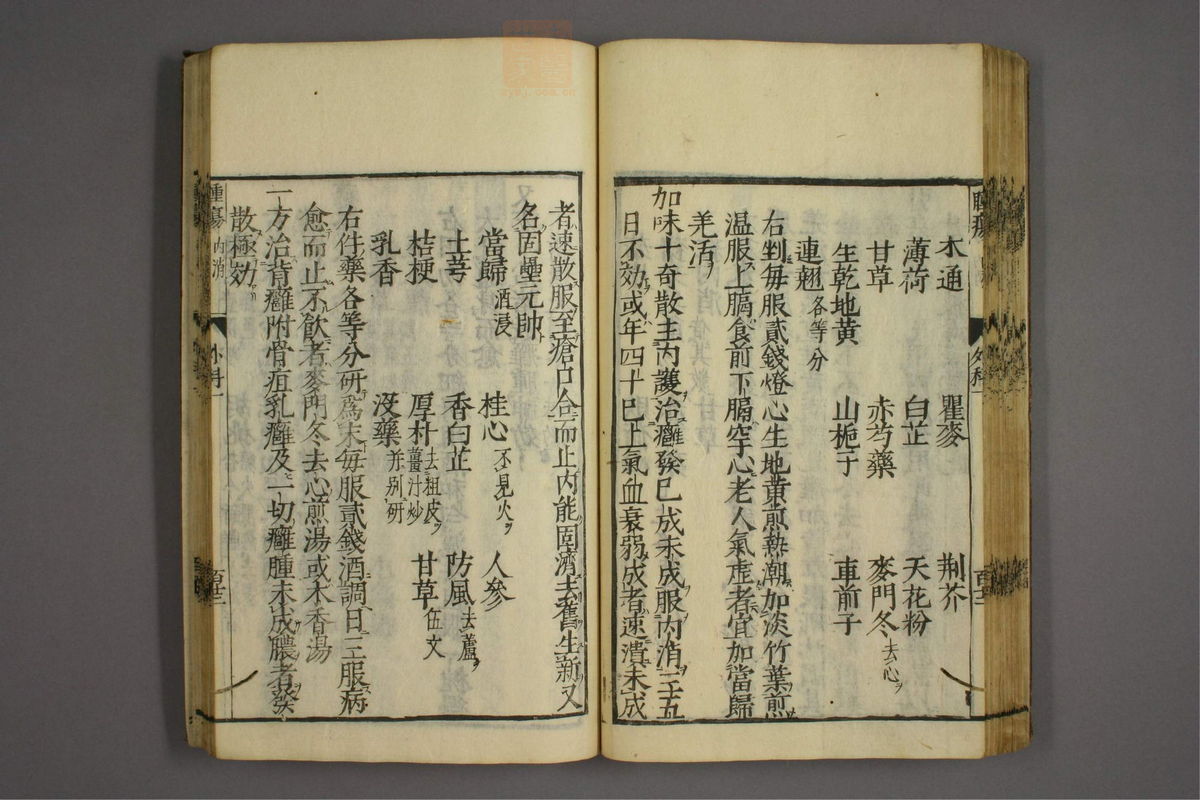 木通 瞿麥 荆芥
薄荷 白芷 天花粉
甘草 赤芍藥 麥門冬去心ヲ
生乾地黄 山梔子 車前子
連翹各等分
右剉毎服貳錢燈心生地黄煎熱潮加淡竹葉煎
温服上膈食前下膈空心老人氣虚者宜加當歸
羌活
加味十奇散主内護治癰發已成未成服内消三五
日不効或年四十已上氣血衰弱成者速潰未成
者速散服至瘡口合而止内能固濟去舊生新又
名固壘元帥
當歸酒浸 桂心不見火ヲ 人參
土芎 香白芷 防風去蘆ヲ
桔梗 厚朴去粗皮ヲ薑汁炒 甘草伍文
乳香 沒藥并别研
右件藥各等分研爲末毎服貳錢酒調日三服病
愈而止不飲者麥門冬去心煎湯或木香湯
一方治背癰附骨疽乳癰及一切癰腫未成膿者發
散極効
腫瘍 内消 外科一
百廿二